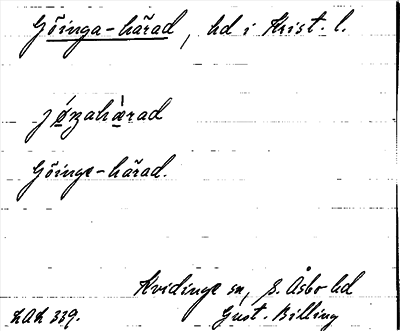 Göinga-härad, hd i Krist. l.
jøŋahàrad
Göinge-härad.
Kvidinge sn, S. Åsbo hd
LAL 339. Gust. Billing